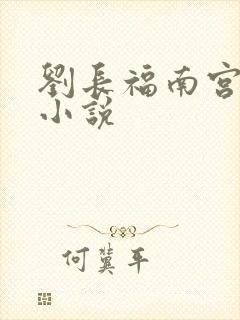 劉長福南宮
小說
何冀平